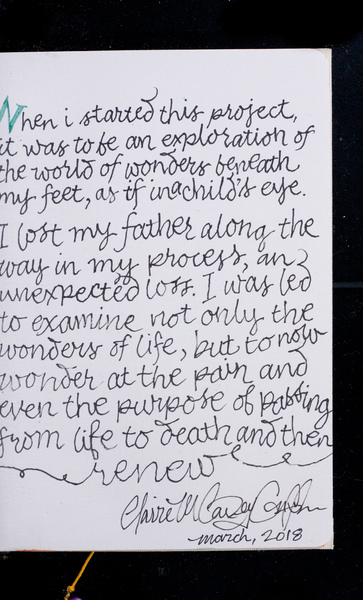 When i started this project,
it was to be an exploration of
the world of wonders beneath
my feet, as if in a child's eye.
I lost my father along the
way in my process, an
unexpected loss. I was led
to examine not only the
wonders of life, but to now
wonder at the pain and
even the purpose of passing
from life to death and then
renew
march, 2018